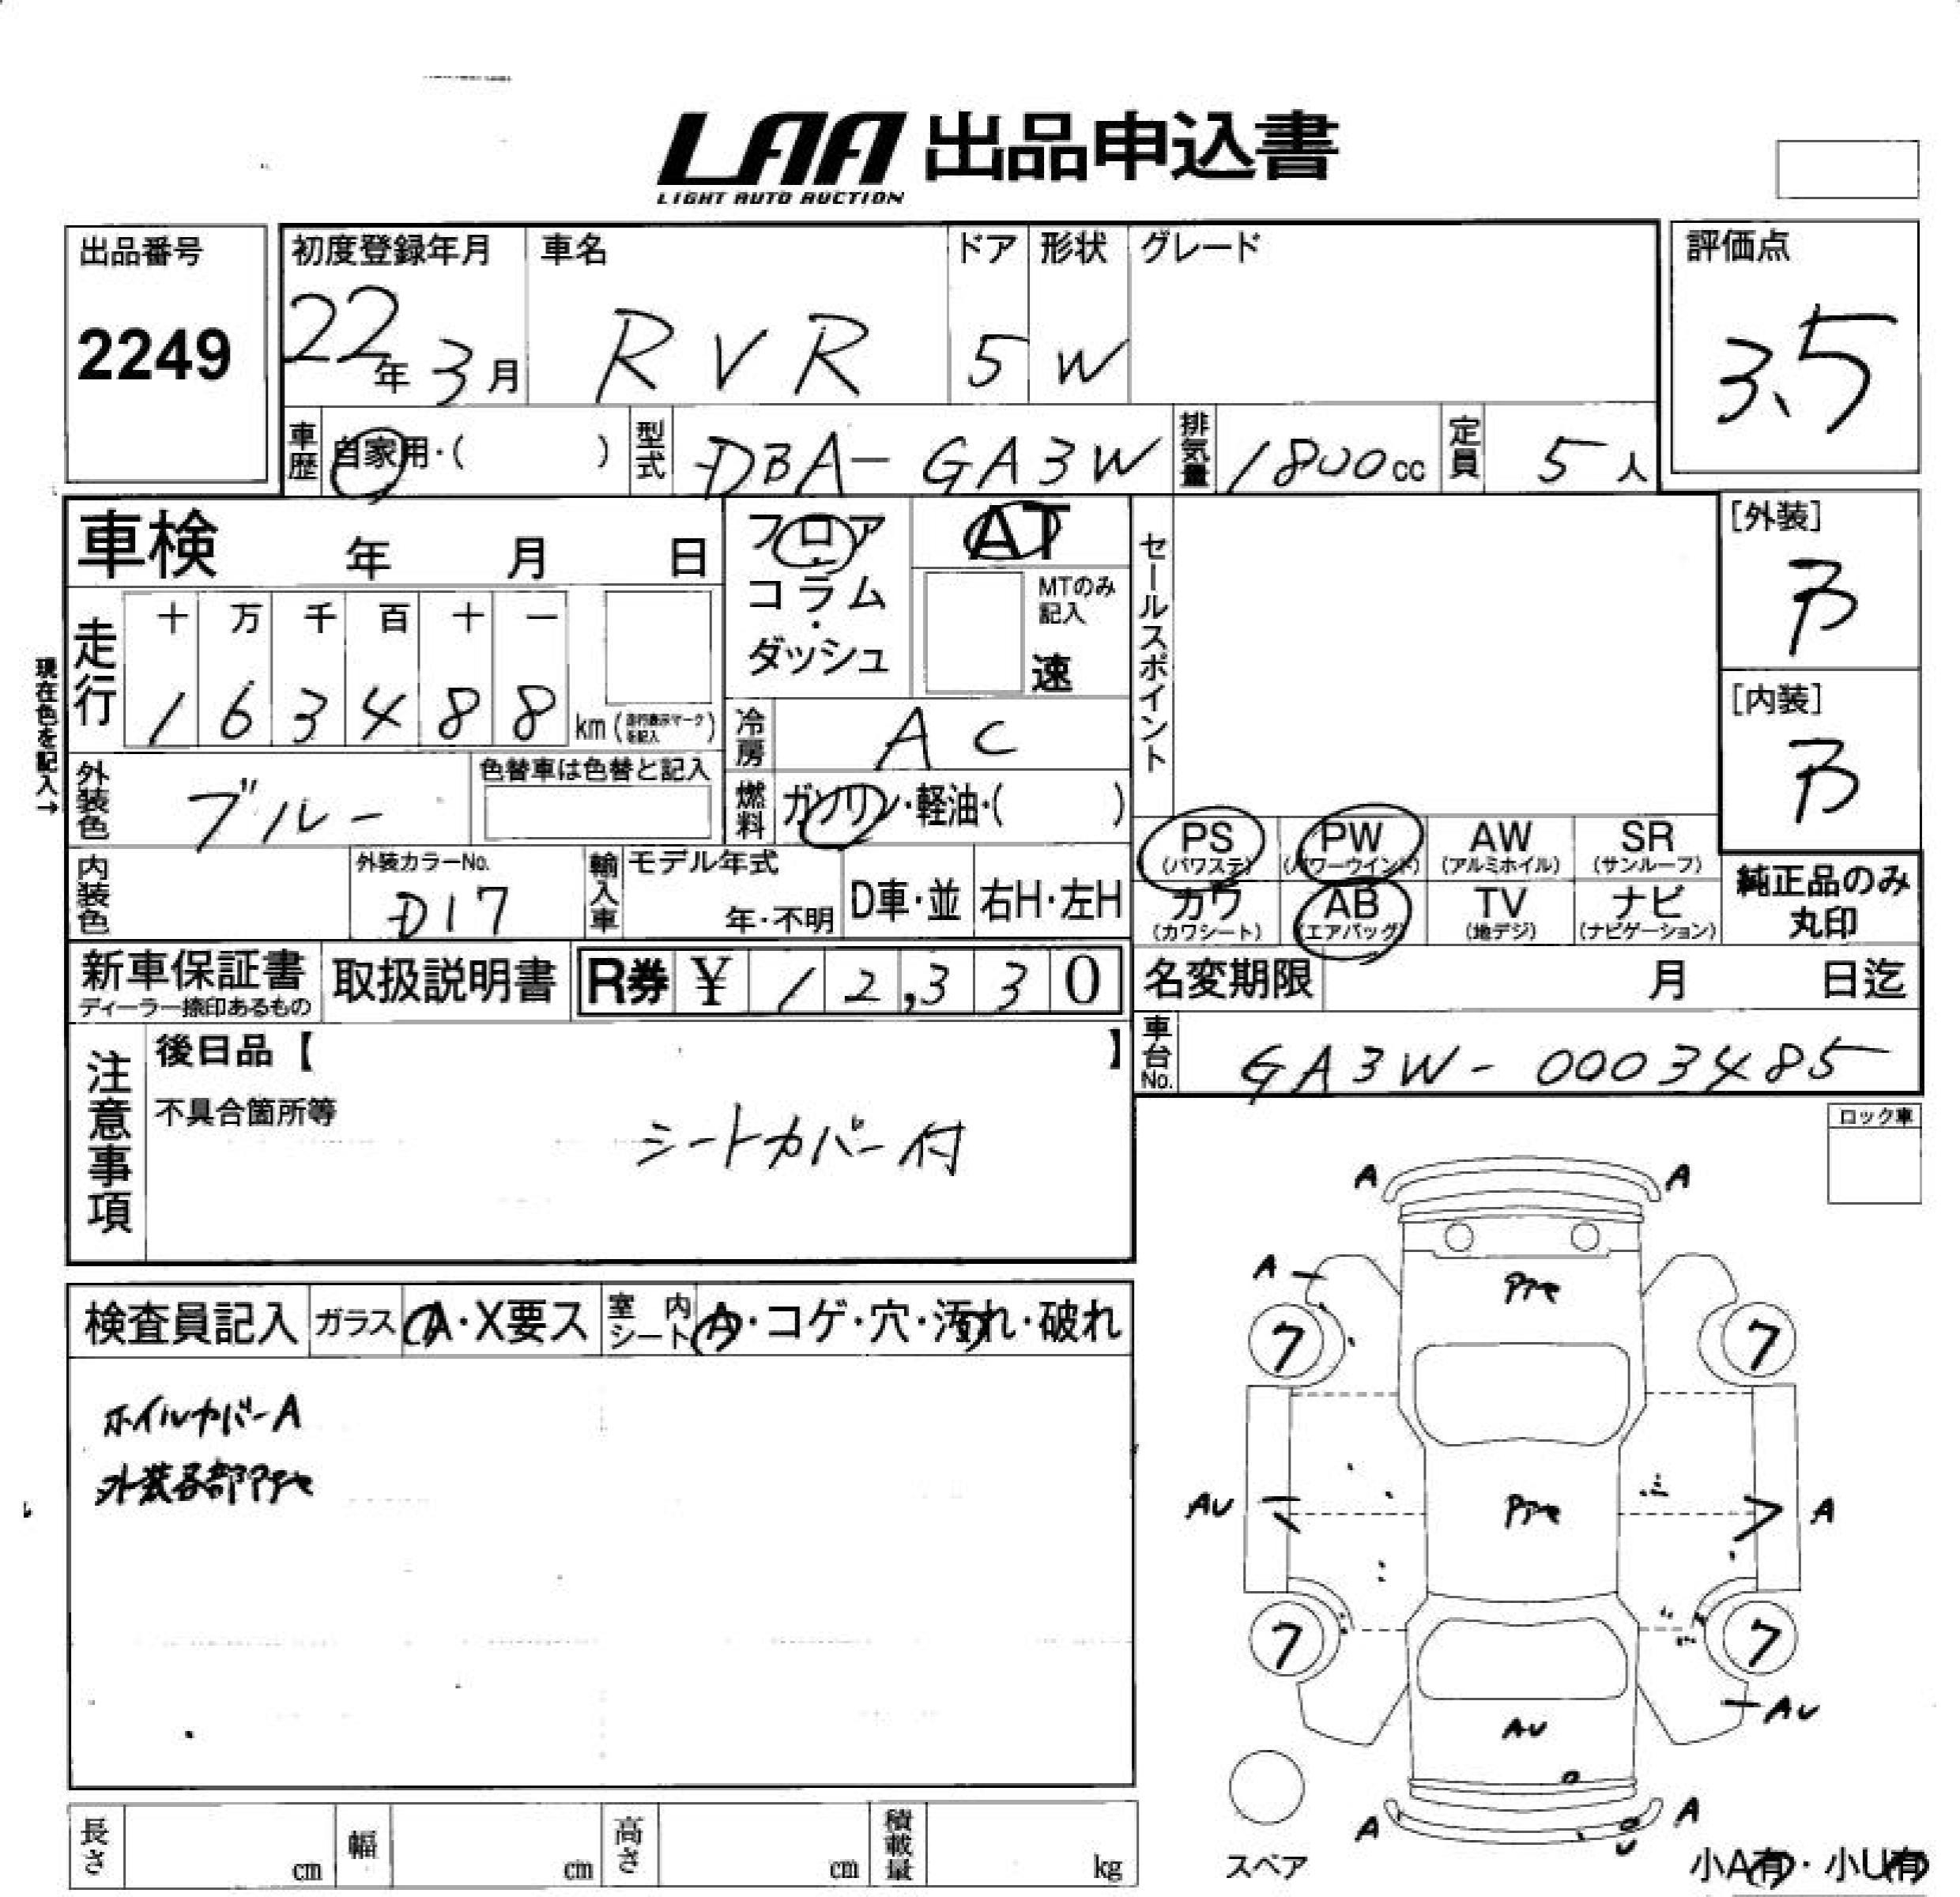 LAA 出品申込書
LIGHT AUTO AUCTION
出品番号
2249
初度登録年月
22年3月
車名
RVR
ドア
5
形状
W
グレード
評価点
3.5
車歴
自家用・( )
型式
DBA-GA3W
排気量
1800cc
定員
5人
車検 年 月 日
フロア・コラム・ダッシュ
AT
MTのみ記入
速
セールスポイント
[外装]
B
[内装]
B
現在色を記入→
走行
十 万 千 百 十 一
1 6 3 4 8 8
km(走行表示マークを記入)
冷房
AC
外装色
ブルー
色替車は色替と記入
燃料
ガソリン・軽油・( )
PS
(パワステ)
PW
(パワーウインド)
AW
(アルミホイル)
SR
(サンルーフ)
内装色
外装カラーNo.
D17
輸入車
モデル年式
年・不明
D車・並
右H・左H
カワ
(カワシート)
AB
(エアバッグ)
TV
(地デジ)
ナビ
(ナビゲーション)
純正品のみ
丸印
新車保証書
ディーラー捺印あるもの
取扱説明書
R券 ¥ 12,330
名変期限 月 日迄
注意事項
後日品【 】
不具合箇所等
シートカバー付
車台No.
GA3W-0003485
ロック車
検査員記入
ガラス
A・X要ス
室内シート
A・コゲ・穴・汚れ・破れ
ホイルカバーA
A
A
A
7
7
AU
A
7
7
AU
AU
A
A
スペア
小A有・小U有
長さ
cm
幅
cm
高さ
cm
積載量
kg